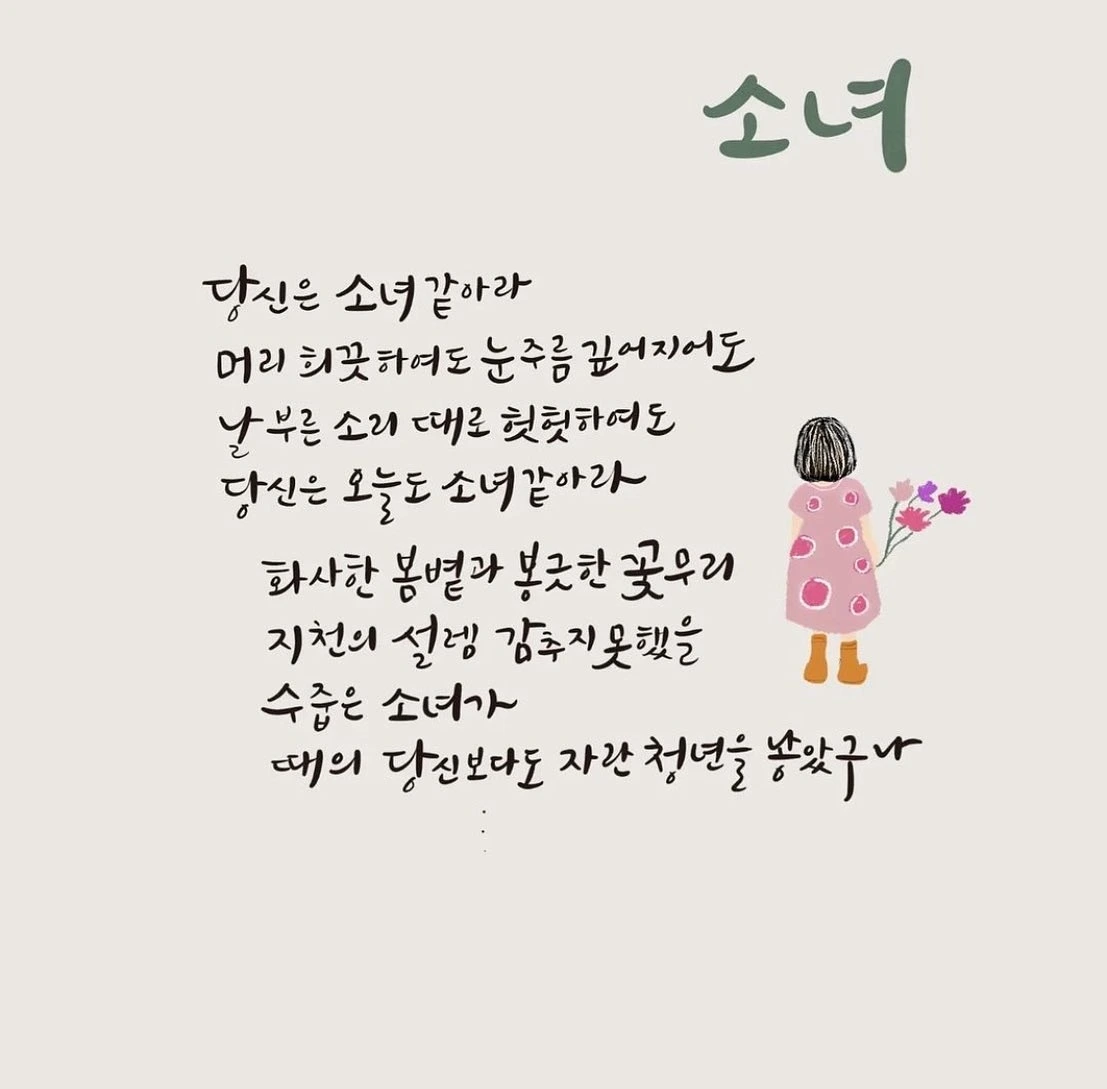 소녀
당신은 소녀 같아라
머리 희끗하여도 눈주름 깊어지어도
날 부른 소리 때로 헛헛하여도
당신은 오늘도 소녀같아라
화사한 봄볕과 봉긋한 꽃무리
지천의 설렘 감추지못했을
수줍은 소녀가
때의 당신보다도 자란 청년을 낳았구나